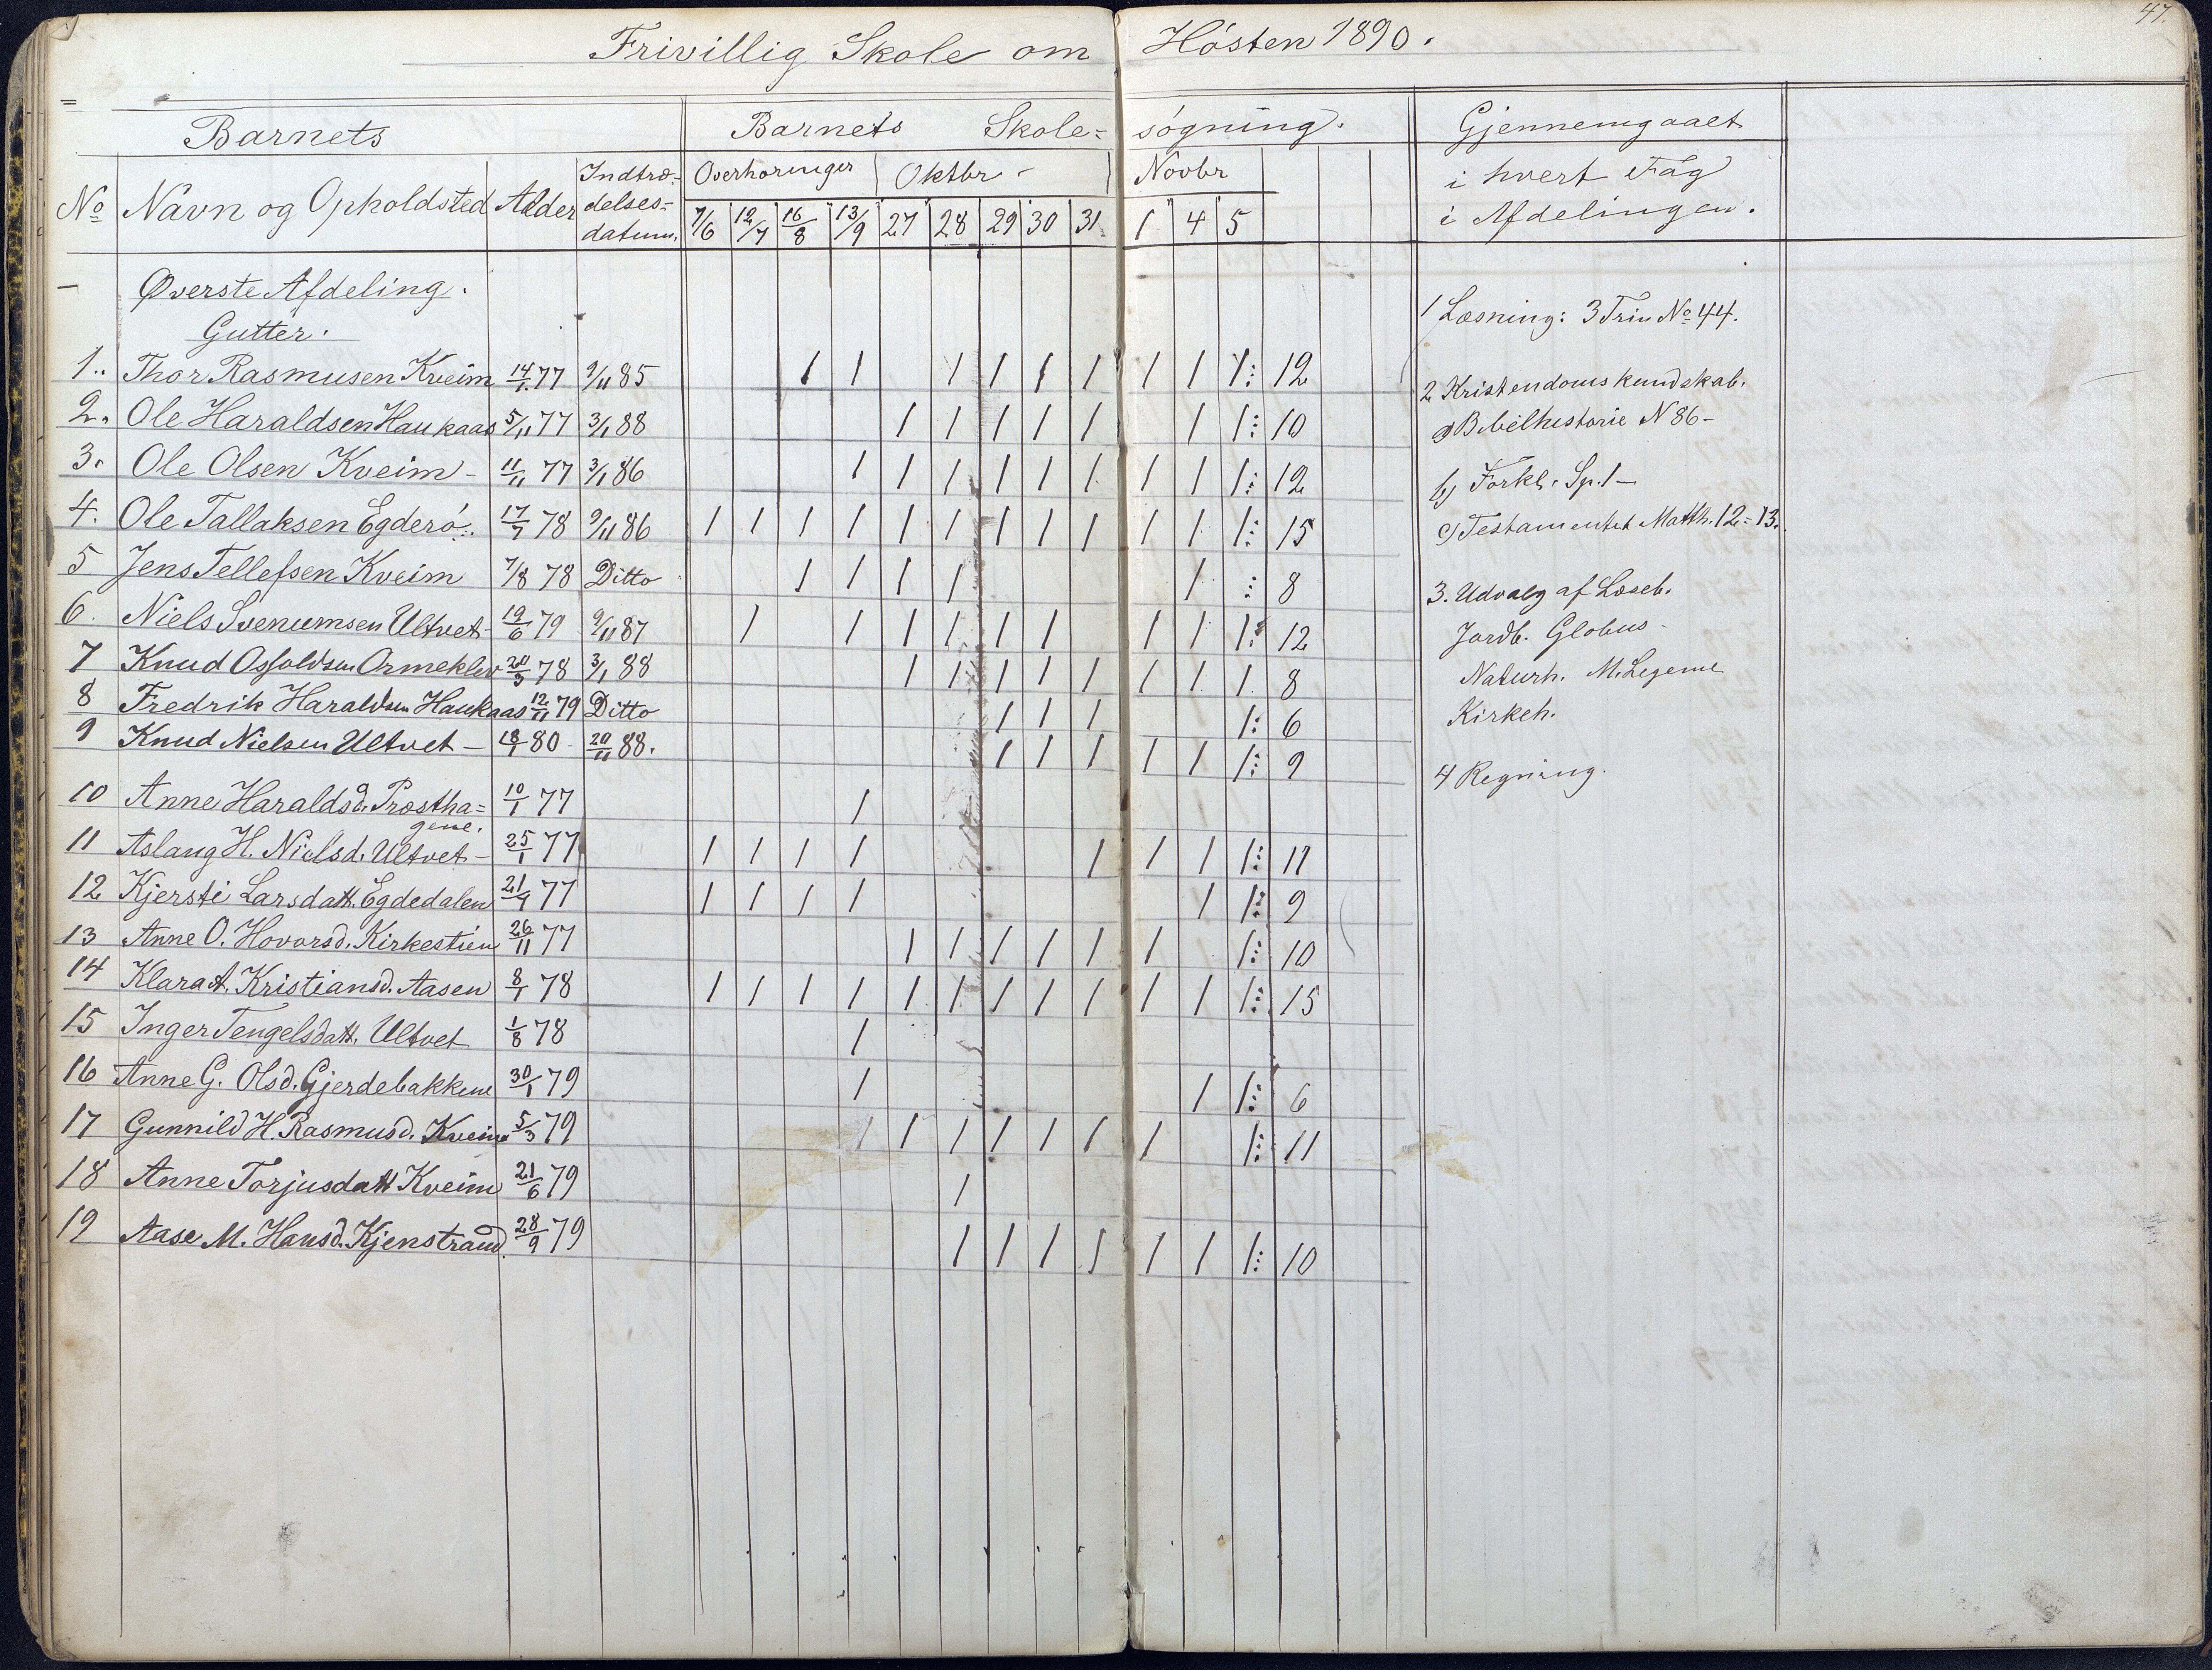 47.
Frivillig Skole om Hösten 1890.
Barnets Barnets Skole= sögning. Gjennemgaaet
i hvert Fag
i Afdelingen.
No Navn og Opholdsted Alder Indtræ=
delses=
datum.
Overhøringer Oktbr - Novbr
7/6 12/7 16/8 13/9 27 28 29 30 31 1 4 5
Øverste Afdeling.
Gutter.
1.. Thor Rasmusen Kveim 14/1 77 9/11 85 1 1 1 1 1 1 1 1 1 : 12
2. Ole Haraldsen Haukaas 5/11 77 3/1 88 1 1 1 1 1 1 1 : 10
3. Ole Olsen Kveim - 11/11 77 3/1 86 1 1 1 1 1 1 1 1 1 : 12
4. Ole Tallaksen Egderö 17/7 78 9/11 86 1 1 1 1 1 1 1 1 1 1 1 1 : 15
5 Jens Tellefsen Kveim 7/8 78 Ditto 1 1 1 1 1 : 8
6. Niels Svenumsen Ultvet - 19/6 79 9/11 87 1 1 1 1 1 1 1 1 1 : 12
7 Knud Osfoldsen Ormeklev 20/3 78 3/1 88 1 1 1 1 1 1 1 1 8
8 Fredrik Haraldsen Haukaas 12/11 79 Ditto 1 1 1 1 : 6
9 Knud Nielsen Ultvet - 18/1 80 - 20/11 88. 1 1 1 1 1 1 : 9
10 Anne Haraldsd. Præstha=
gene. 10/1 77 1
11 Aslaug H. Nielsd. Ultvet - 25/1 77 1 1 1 1 1 1 1 1 : 11
12 Kjersti Larsdatt. Egdedalen 21/4 77 1 1 1 1 1 1 : 9
13 Anne O. Hovorsd. Kirkestien 26/11 77 1 1 1 1 1 1 1 : 10
14 Klara A. Kristiansd. Aasen 8/1 78 1 1 1 1 1 1 1 1 1 1 1 1 : 15
15 Inger Tengelsdatt. Ultvet 1/8 78 1
16 Anne G. Olsd. Gjerdebakkene 30/1 79 1 1 1 : 6
17 Gunnild H. Rasmusd. Kveim 5/3 79 1 1 1 1 1 1 1 1 : 11
18 Anne Torjusdatt Kveim 21/6 79 1
19 Aase M. Hansd. Kjenstrand. 28/9 79 1 1 1 1 1 1 1 : 10
1 Læsning: 3 Trin No 44.
2 Kristendomskundskab.
a) Bibelhistorie N 86 -
b) Forkl. Sp. 1 -
c) Testamentet Matth. 12 = 13.
3. Udvalg af Læseb.
Jordb. Globus -
Naturh. M. Legeme
Kirkeh.
4 Regning.